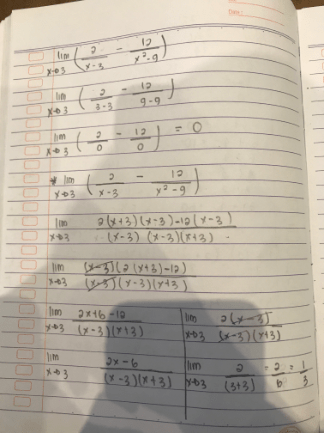 lim x→3 ( 2/(x-3) - 12/(x²-9) )
lim x→3 ( 2/(3-3) - 12/(9-9) )
lim x→3 ( 2/0 - 12/0 ) = 0
* lim x→3 ( 2/(x-3) - 12/(x²-9) )
lim x→3 (2(x+3)(x-3)-12(x-3))/((x-3)(x-3)(x+3))
lim x→3 ((x-3)(2(x+3)-12))/((x-3)(x-3)(x+3))
lim x→3 (2x+6-12)/((x-3)(x+3))
lim x→3 (2x-6)/((x-3)(x+3))
lim x→3 (2(x-3))/((x-3)(x+3))
lim x→3 2/(3+3) = 2/6 = 1/3